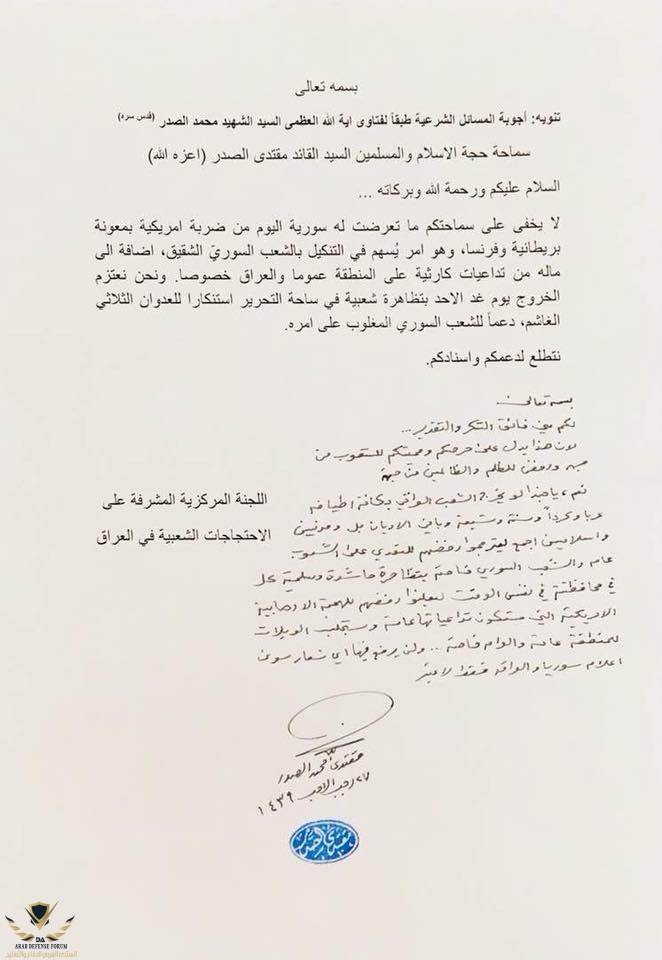 بسمه تعالى
تنويه: أجوبة المسائل الشرعية طبقاً لفتاوى اية الله العظمى السيد الشهيد محمد الصدر (قدس سره)
سماحة حجة الاسلام والمسلمين السيد القائد مقتدى الصدر (اعزه الله)
السلام عليكم ورحمة الله وبركاته ...
لا يخفى على سماحتكم ما تعرضت له سورية اليوم من ضربة امريكية بمعونة
بريطانية وفرنسا، وهو امر يُسهم في التنكيل بالشعب السوريّ الشقيق، اضافة الى
ماله من تداعيات كارثية على المنطقة عموما والعراق خصوصا. ونحن نعتزم
الخروج يوم غد الاحد بتظاهرة شعبية في ساحة التحرير استنكارا للعدوان الثلاثي
الغاشم، دعماً للشعب السوري المغلوب على امره.
نتطلع لدعمكم واسنادكم.
بسمه تعالى
لكم مني فائق الشكر والتقدير ...
لان هذا يدل على حرصكم ومحبتكم للشعوب من
جهة ورفض للظلم والظالمين من جهة
نعم، يا حبذا لو يخرج الشعب العراقي بكافة اطيافه
عربا وكرداً وسنة وشيعة وباقي الاديان بل ومدنيين
واسلاميين اجمع ليترجموا رفضهم للتعدي على الشعوب
عامة والشعب السوري خاصة بتظاهرة حاشدة وسلمية كل
في محافظته في نفس الوقت ليعلنوا رفضهم للهجمة الارهابية
الامريكية التي ستكون تداعياتها عامة وستجلب الويلات
للمنطقة عامة والعراق خاصة ... ولن يرفع فيها اي شعار سوى
اعلام سوريا والعراق فقط لا غير
اللجنة المركزية المشرفة على
الاحتجاجات الشعبية في العراق
مقتدى محمد الصدر
٢٧ رجب الاصب ١٤٣٩
مقتدى الصدر
DA
ARAB DEFENSE FORUM
المنتدى العربي للدفاع والتسليح